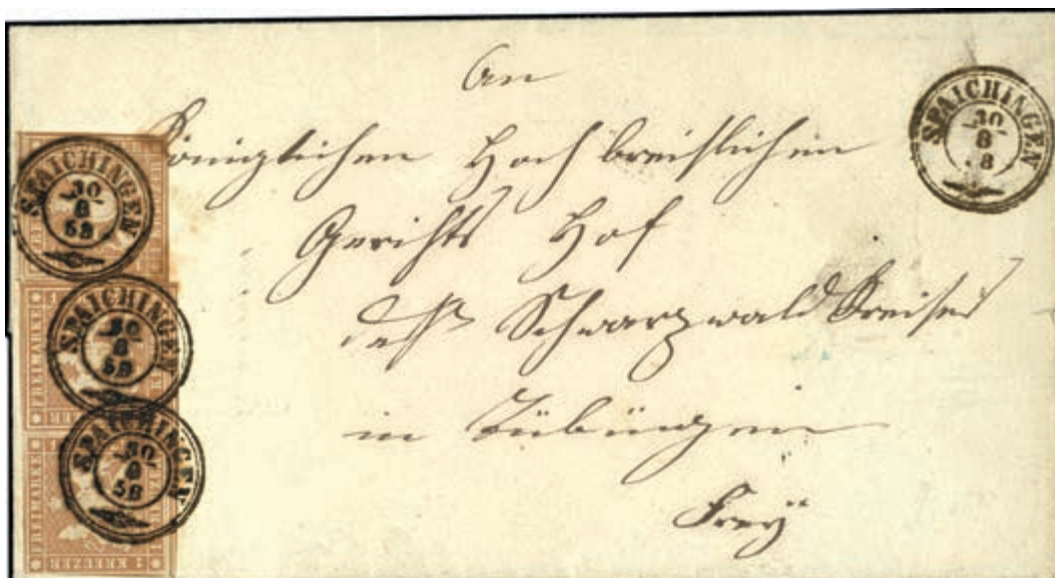 An
Königlichen Hochpreißlichen
Gerichts Hof
deß Schwarzwald Kreises
in Tübingen
Frey
SPAICHINGEN
30
8
8
SPAICHINGEN
30
8
58
SPAICHINGEN
30
8
58
SPAICHINGEN
30
8
58
FREIMARKE
FREIMARKE
KREUZER
1 KREUZER 1